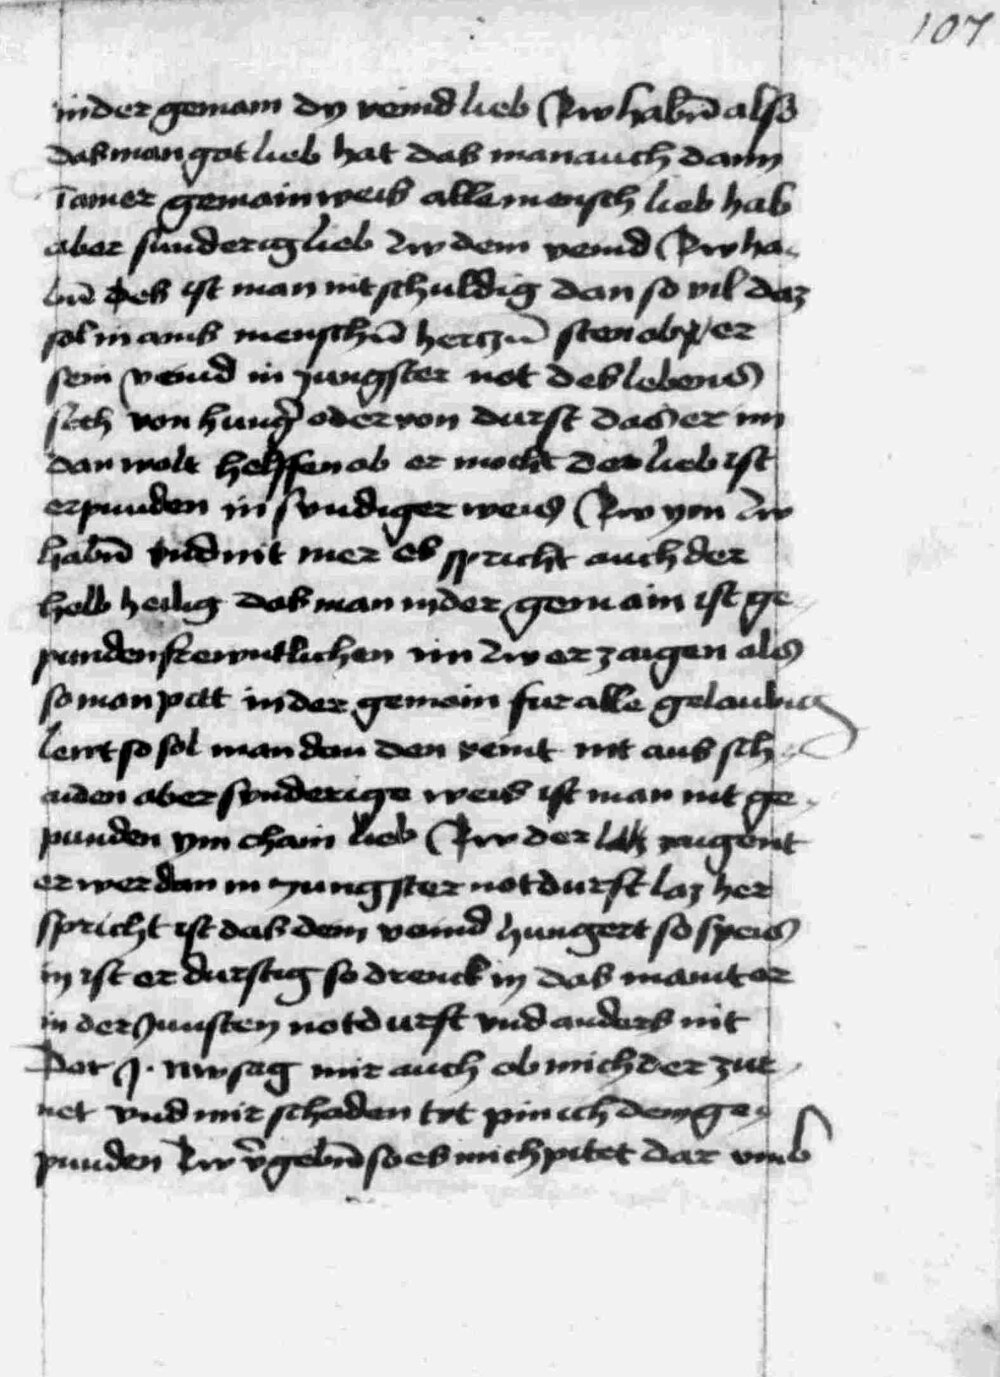 107
in der gemain dy veind lieb zw habñ also
das man got lieb hat das man auch dann
in ainer gemain weis alle mensch lieb hab
aber sunderig lieb zw dem veind zw ha-
bñ des ist man nit schuldig dan so vil daz
sol in ains menschñ hertzñ sten ob er
sein veind in jungster not des lebens
sech von hung̃ oder von durst das er im
dan wolt helffen ob er mocht der lieb ist
er punden in sundiger weis zw ym zw
habñ vnd nit mer es spricht auch der
selb heilig das man in der gemain ist ge-
punden frewntlichen im zw erzaigen als
so man pitt in der gemain fur alle gelaubig
lewt so sol man dan den veint nit aus sch-
aiden aber synderige weis ist man nit ge-
punden ym chain lieb zw der zaigent
er wer dan in jungster notdurft laz her
spricht ist das dem veind hungert so speis
in ist er durstig so drenck in das maint er
in der junsten notdurft vnd anders nit
Der J. nw sag mir auch ob mich der zur-
net vnd mir schaden tyt pin ich dem ge-
punden zw v̄gebñ so es mich pitet dar vmb